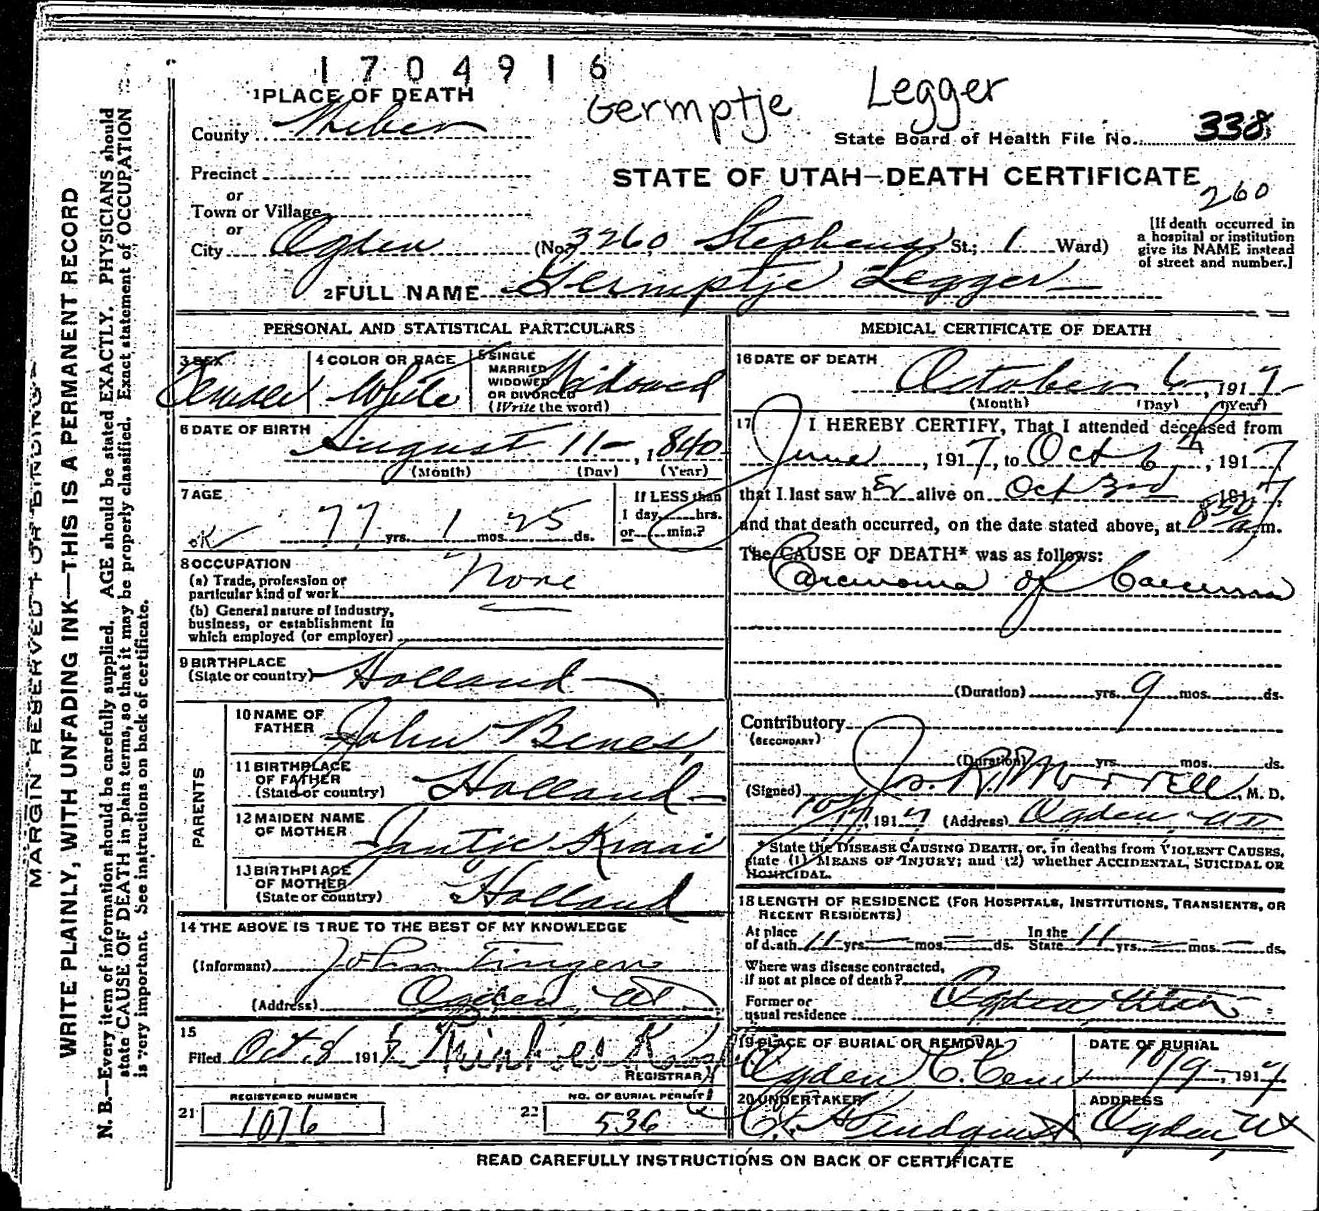 1704916
Germptje Legger
1 PLACE OF DEATH
County Weber
State Board of Health File No. 338
Precinct
STATE OF UTAH—DEATH CERTIFICATE
260
or
Town or Village
or
City Ogden (No. 3260 Stephens St.; 1 Ward)
[If death occurred in
a hospital or institution
give its NAME instead
of street and number.]
2 FULL NAME Germptje Legger
PERSONAL AND STATISTICAL PARTICULARS
3 SEX Female
4 COLOR OR RACE White
5 SINGLE
MARRIED
WIDOWED
OR DIVORCED
(Write the word)
Widowed
6 DATE OF BIRTH
August 11, 1840
(Month) (Day) (Year)
7 AGE
OK 77 yrs. 1 mos. 25 ds.
If LESS than
1 day, hrs.
or min.?
8 OCCUPATION
(a) Trade, profession or
particular kind of work None
(b) General nature of industry,
business, or establishment in
which employed (or employer)
9 BIRTHPLACE
(State or country) Holland
PARENTS
10 NAME OF
FATHER John Benes
11 BIRTHPLACE
OF FATHER
(State or country) Holland
12 MAIDEN NAME
OF MOTHER Jantje Kraai
13 BIRTHPLACE
OF MOTHER
(State or country) Holland
14 THE ABOVE IS TRUE TO THE BEST OF MY KNOWLEDGE
(Informant) John Tingen
(Address) Ogden, Ut
15
Filed Oct. 8 1917
REGISTRAR
21 REGISTERED NUMBER
1076
22 NO. OF BURIAL PERMIT
536
MEDICAL CERTIFICATE OF DEATH
16 DATE OF DEATH
October 6, 1917
(Month) (Day) (Year)
17 I HEREBY CERTIFY, That I attended deceased from
June, 1917, to Oct 6th, 1917
that I last saw her alive on Oct 3rd 1917
and that death occurred, on the date stated above, at 850 a m.
The CAUSE OF DEATH* was as follows:
Carcinoma of
(Duration) yrs. 9 mos. ds.
Contributory
(SECONDARY)
(Duration) yrs. mos. ds.
(Signed) Jos. R. Morrell, M. D.
10/7, 1917 (Address) Ogden Ut
* State the DISEASE CAUSING DEATH, or, in deaths from VIOLENT CAUSES,
state (1) MEANS OF INJURY; and (2) whether ACCIDENTAL, SUICIDAL OR
HOMICIDAL.
18 LENGTH OF RESIDENCE (FOR HOSPITALS, INSTITUTIONS, TRANSIENTS, OR
RECENT RESIDENTS)
At place
of death 11 yrs. — mos. — ds.
In the
State 11 yrs. — mos. — ds.
Where was disease contracted,
if not at place of death?
Former or
usual residence Ogden, Utah
19 PLACE OF BURIAL OR REMOVAL
Ogden C. Cem
DATE OF BURIAL
10/9, 1917
20 UNDERTAKER
Kindquist
ADDRESS
Ogden, Ut
READ CAREFULLY INSTRUCTIONS ON BACK OF CERTIFICATE
MARGIN RESERVED FOR BINDING
WRITE PLAINLY, WITH UNFADING INK—THIS IS A PERMANENT RECORD
N. B.—Every item of information should be carefully supplied. AGE should be stated EXACTLY. PHYSICIANS should
state CAUSE OF DEATH in plain terms, so that it may be properly classified. Exact statement of OCCUPATION
is very important. See instructions on back of certificate.